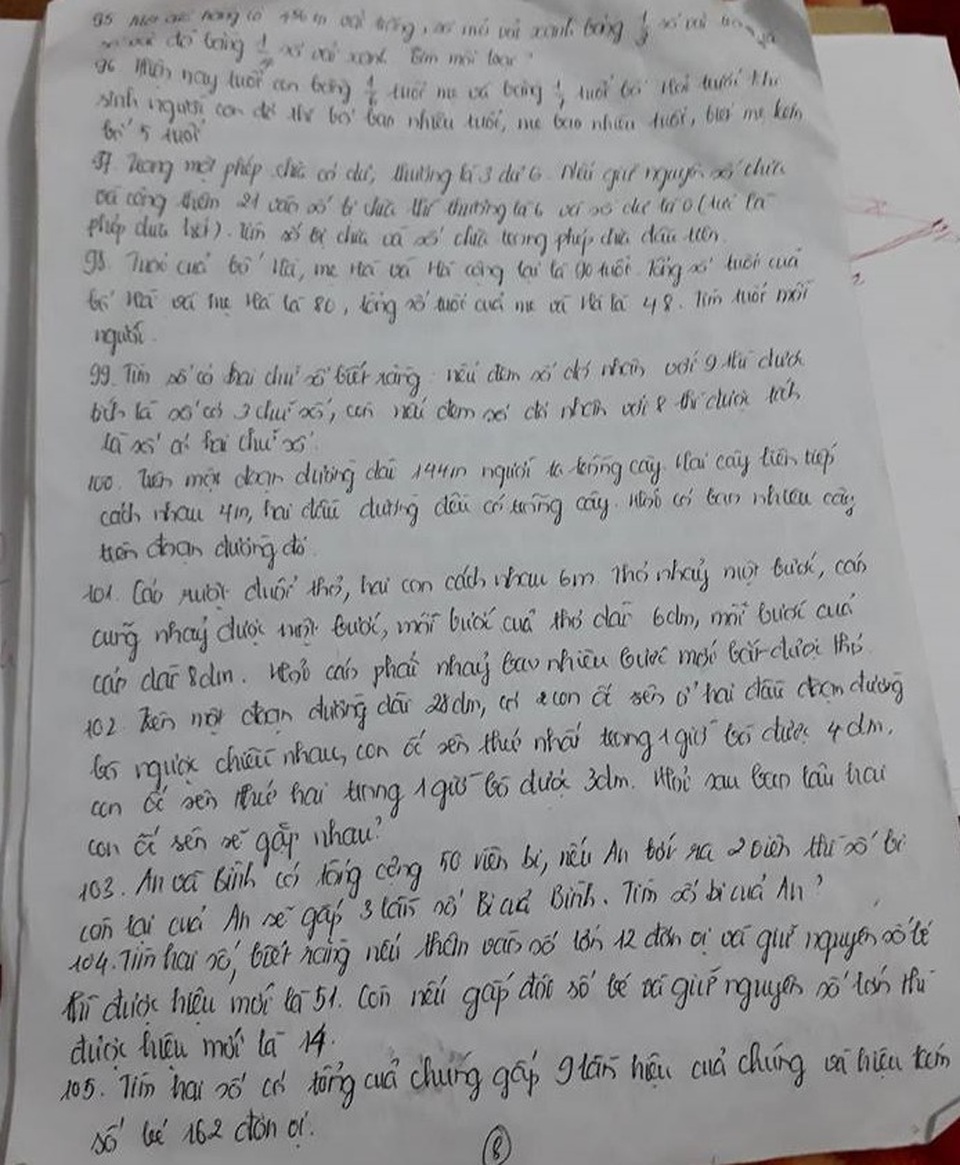 95 Một cửa hàng có m vải trắng, số mét vải xanh bằng 1/3 số vải trắng
số vải đỏ bằng số vải xanh. Tìm mỗi loại.
96 Hiện nay tuổi con bằng 1/6 tuổi mẹ và bằng 1/7 tuổi bố. Hỏi tuổi khi
sinh người con đó thì bố bao nhiêu tuổi, mẹ bao nhiêu tuổi, biết mẹ kém
bố 5 tuổi
97. Trong một phép chia có dư, thương là 3 dư 6. Nếu giữ nguyên số chia
và cộng thêm 21 vào số bị chia thì thương là 6 và số dư là 0 (tức là
phép chia hết). Tìm số bị chia và số chia trong phép chia đầu tiên.
98. Tuổi của bố Hà, mẹ Hà và Hà cộng lại là 90 tuổi. Tổng số tuổi của
bố Hà và mẹ Hà là 80, tổng số tuổi của mẹ và Hà là 48. Tìm tuổi mỗi
người.
99. Tìm số có hai chữ số biết rằng nếu đem số đó nhân với 9 thì được
tích là số có 3 chữ số, còn nếu đem số đó nhân với 8 thì được tích
là số có hai chữ số.
100. Trên một đoạn đường dài 144m người ta trồng cây. Hai cây liên tiếp
cách nhau 4m, hai đầu đường đều có trồng cây. Hỏi có bao nhiêu cây
trên đoạn đường đó.
101. Cáo rượt đuổi thỏ, hai con cách nhau 6m. Thỏ nhảy một bước, cáo
cũng nhảy được một bước, mỗi bước của thỏ dài 6dm, mỗi bước của
cáo dài 8dm. Hỏi cáo phải nhảy bao nhiêu bước mới bắt được thỏ.
102. Trên một đoạn đường dài 28dm, có 2 con ốc sên ở hai đầu đoạn đường
bò ngược chiều nhau, con ốc sên thứ nhất trong 1 giờ bò được 4dm,
con ốc sên thứ hai trong 1 giờ bò được 3dm. Hỏi sau bao lâu hai
con ốc sên sẽ gặp nhau?
103. An và Bình có tổng cộng 50 viên bi, nếu An bớt ra 2 viên thì số bi
còn lại của An sẽ gấp 3 lần số Bi của Bình. Tìm số bi của An?
104. Tìm hai số, biết rằng nếu thêm vào số lớn 12 đơn vị và giữ nguyên số bé
thì được hiệu mới là 51. Còn nếu gấp đôi số bé và giữ nguyên số lớn thì
được hiệu mới là 14.
105. Tìm hai số có tổng của chúng gấp 9 lần hiệu của chúng và hiệu kém
số bé 162 đơn vị.
8